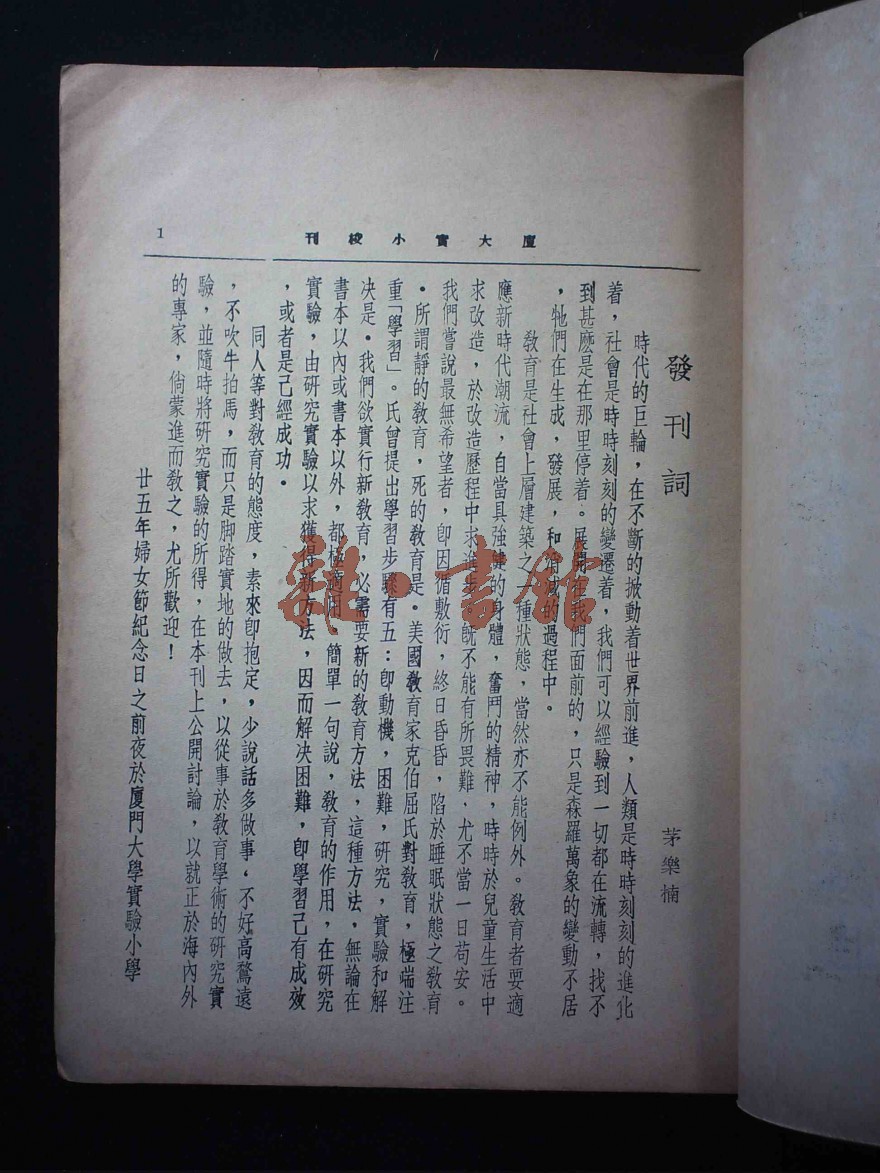 廈大實小校刊
1
發刊詞
茅樂楠
時代的巨輪，在不斷的掀動着世界前進，人類是時時刻刻的進化
着，社會是時時刻刻的變遷着，我們可以經驗到一切都在流轉，找不
到甚麽是在那里停着。展開在我們面前的，只是森羅萬象的變動不居
，牠們在生成，發展，和消滅的過程中。
教育是社會上層建築之一種狀態，當然亦不能例外。教育者要適
應新時代潮流，自當具強健的身體，奮鬥的精神，時時於兒童生活中
求改造，於改造歷程中求進步。既不能有所畏難，尤不當一日苟安。
我們嘗說最無希望者，卽因循敷衍，終日昏昏，陷於睡眠狀態之教育
。所謂靜的教育，死的教育是。美國教育家克伯屈氏對教育，極端注
重「學習」。氏曾提出學習步驟有五：卽動機，困難，研究，實驗和解
决是。我們欲實行新教育，必需要新的教育方法，這種方法，無論在
書本以內或書本以外，都極適用。簡單一句說，教育的作用，在研究
實驗，由研究實驗以求獲得新方法，因而解决困難，卽學習己有成效
，或者是己經成功。
同人等對教育的態度，素來卽抱定，少說話多做事，不好高騖遠
，不吹牛拍馬，而只是脚踏實地的做去，以從事於教育學術的研究實
驗，並隨時將研究實驗的所得，在本刊上公開討論，以就正於海內外
的專家，倘蒙進而教之，尤所歡迎！
廿五年婦女節紀念日之前夜於廈門大學實驗小學
雜·書館